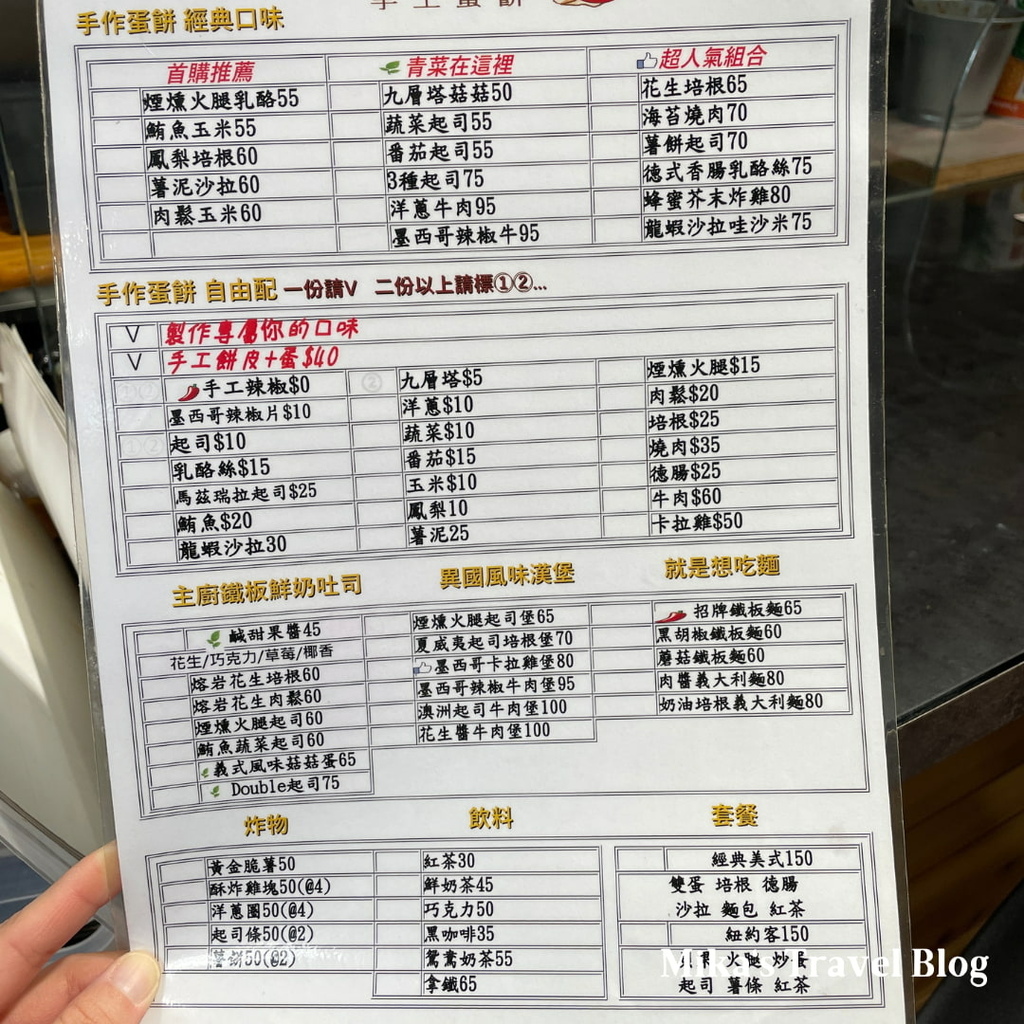 手工蛋餅
手作蛋餅 經典口味
首購推薦
煙燻火腿乳酪55
鮪魚玉米55
鳳梨培根60
薯泥沙拉60
肉鬆玉米60
青菜在這裡
九層塔菇菇50
蔬菜起司55
番茄起司55
3種起司75
洋蔥牛肉95
墨西哥辣椒牛95
超人氣組合
花生培根65
海苔燒肉70
薯餅起司70
德式香腸乳酪絲75
蜂蜜芥末炸雞80
龍蝦沙拉哇沙米75
手作蛋餅 自由配 一份請V 二份以上請標①②...
V 製作專屬你的口味
V 手工餅皮+蛋$40
①② 手工辣椒$0
墨西哥辣椒片$10
①② 起司$10
乳酪絲$15
馬茲瑞拉起司$25
鮪魚$20
龍蝦沙拉30
② 九層塔$5
洋蔥$10
蔬菜$10
番茄$15
玉米$10
鳳梨10
薯泥25
煙燻火腿$15
肉鬆$20
培根$25
燒肉$35
德腸$25
牛肉$60
卡拉雞$50
主廚鐵板鮮奶吐司
鹹甜果醬45
花生/巧克力/草莓/椰香
熔岩花生培根60
熔岩花生肉鬆60
煙燻火腿起司60
鮪魚蔬菜起司60
義式風味菇菇蛋65
Double起司75
異國風味漢堡
煙燻火腿起司堡65
夏威夷起司培根堡70
墨西哥卡拉雞堡80
墨西哥辣椒牛肉堡95
澳洲起司牛肉堡100
花生醬牛肉堡100
就是想吃麵
招牌鐵板麵65
黑胡椒鐵板麵60
蘑菇鐵板麵60
肉醬義大利麵80
奶油培根義大利麵80
炸物
黃金脆薯50
酥炸雞塊50(@4)
洋蔥圈50(@4)
起司條50(@2)
薯餅50(@2)
飲料
紅茶30
鮮奶茶45
巧克力50
黑咖啡35
鴛鴦奶茶55
拿鐵65
套餐
經典美式150
雙蛋 培根 德腸
沙拉 麵包 紅茶
紐約客150
火腿 炒蛋
起司 薯條 紅茶
Mika's Travel Blog